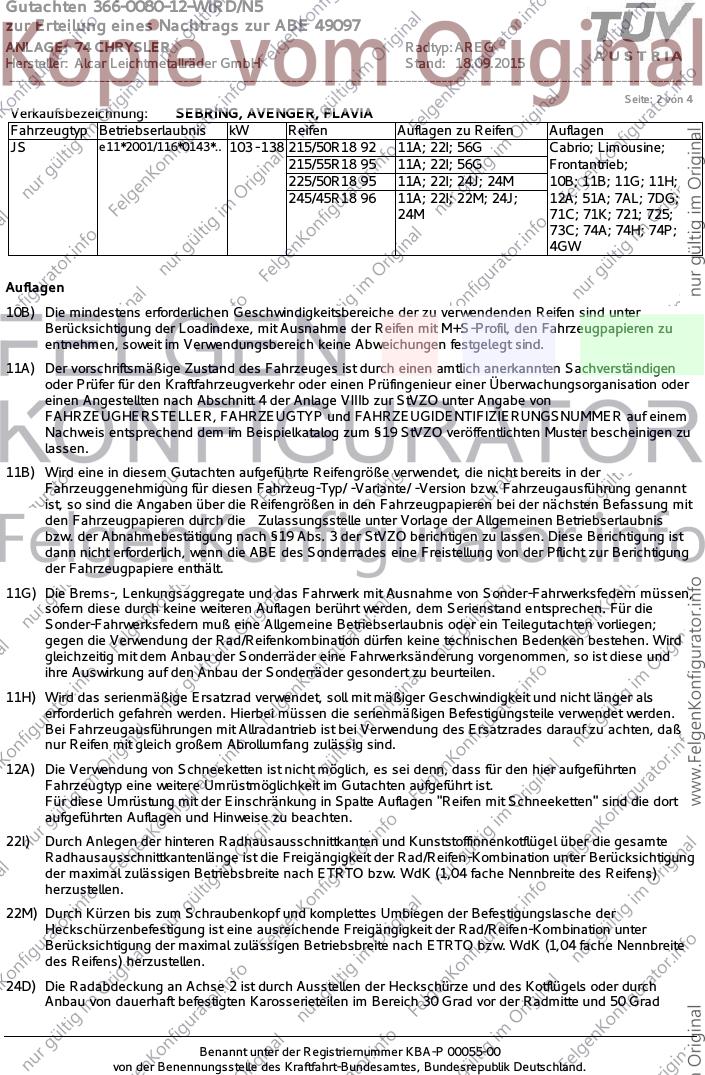 Gutachten 366-0080-12-WIRD/N5
zur Erteilung eines Nachtrags zur ABE 49097
ANLAGE: 74 CHRYSLER
Hersteller: Alcar Leichtmetallräder GmbH
Radtyp: AREG
Stand: 18.09.2015
TÜV
AUSTRIA
Kopie vom Original
Seite: 2 von 4
Verkaufsbezeichnung: SEBRING, AVENGER, FLAVIA
Fahrzeugtyp Betriebserlaubnis kW Reifen Auflagen zu Reifen Auflagen
JS e11*2001/116*0143*.. 103-138 215/50R18 92 11A; 22I; 56G Cabrio; Limousine;
215/55R18 95 11A; 22I; 56G Frontantrieb;
225/50R18 95 11A; 22I; 24J; 24M 10B; 11B; 11G; 11H;
245/45R18 96 11A; 22I; 22M; 24J; 12A; 51A; 7AL; 7DG;
24M 71C; 71K; 721; 725;
73C; 74A; 74H; 74P;
4GW
Auflagen
10B) Die mindestens erforderlichen Geschwindigkeitsbereiche der zu verwendenden Reifen sind unter
Berücksichtigung der Loadindexe, mit Ausnahme der Reifen mit M+S-Profil, den Fahrzeugpapieren zu
entnehmen, soweit im Verwendungsbereich keine Abweichungen festgelegt sind.
11A) Der vorschriftsmäßige Zustand des Fahrzeuges ist durch einen amtlich anerkannten Sachverständigen
oder Prüfer für den Kraftfahrzeugverkehr oder einen Prüfingenieur einer Überwachungsorganisation oder
einen Angestellten nach Abschnitt 4 der Anlage VIIIb zur StVZO unter Angabe von
FAHRZEUGHERSTELLER, FAHRZEUGTYP und FAHRZEUGIDENTIFIZIERUNGSNUMMER auf einem
Nachweis entsprechend dem im Beispielkatalog zum §19 StVZO veröffentlichten Muster bescheinigen zu
lassen.
11B) Wird eine in diesem Gutachten aufgeführte Reifengröße verwendet, die nicht bereits in der
Fahrzeuggenehmigung für diesen Fahrzeug-Typ/ -Variante/ -Version bzw. Fahrzeugausführung genannt
ist, so sind die Angaben über die Reifengrößen in den Fahrzeugpapieren bei der nächsten Befassung mit
den Fahrzeugpapieren durch die Zulassungsstelle unter Vorlage der Allgemeinen Betriebserlaubnis
bzw. der Abnahmebestätigung nach §19 Abs. 3 der StVZO berichtigen zu lassen. Diese Berichtigung ist
dann nicht erforderlich, wenn die ABE des Sonderrades eine Freistellung von der Pflicht zur Berichtigung
der Fahrzeugpapiere enthält.
11G) Die Brems-, Lenkungsaggregate und das Fahrwerk mit Ausnahme von Sonder-Fahrwerksfedern müssen,
sofern diese durch keine weiteren Auflagen berührt werden, dem Serienstand entsprechen. Für die
Sonder-Fahrwerksfedern muß eine Allgemeine Betriebserlaubnis oder ein Teilegutachten vorliegen;
gegen die Verwendung der Rad/Reifenkombination dürfen keine technischen Bedenken bestehen. Wird
gleichzeitig mit dem Anbau der Sonderräder eine Fahrwerksänderung vorgenommen, so ist diese und
ihre Auswirkung auf den Anbau der Sonderräder gesondert zu beurteilen.
11H) Wird das serienmäßige Ersatzrad verwendet, soll mit mäßiger Geschwindigkeit und nicht länger als
erforderlich gefahren werden. Hierbei müssen die serienmäßigen Befestigungsteile verwendet werden.
Bei Fahrzeugausführungen mit Allradantrieb ist bei Verwendung des Ersatzrades darauf zu achten, daß
nur Reifen mit gleich großem Abrollumfang zulässig sind.
12A) Die Verwendung von Schneeketten ist nicht möglich, es sei denn, dass für den hier aufgeführten
Fahrzeugtyp eine weitere Umrüstmöglichkeit im Gutachten aufgeführt ist.
Für diese Umrüstung mit der Einschränkung in Spalte Auflagen "Reifen mit Schneeketten" sind die dort
aufgeführten Auflagen und Hinweise zu beachten.
22I) Durch Anlegen der hinteren Radhausausschnittkanten und Kunststoffinnenkotflügel über die gesamte
Radhausausschnittkantenlänge ist die Freigängigkeit der Rad/Reifen-Kombination unter Berücksichtigung
der maximal zulässigen Betriebsbreite nach ETRTO bzw. WdK (1,04 fache Nennbreite des Reifens)
herzustellen.
22M) Durch Kürzen bis zum Schraubenkopf und komplettes Umbiegen der Befestigungslasche der
Heckschürzenbefestigung ist eine ausreichende Freigängigkeit der Rad/Reifen-Kombination unter
Berücksichtigung der maximal zulässigen Betriebsbreite nach ETRTO bzw. WdK (1,04 fache Nennbreite
des Reifens) herzustellen.
24D) Die Radabdeckung an Achse 2 ist durch Ausstellen der Heckschürze und des Kotflügels oder durch
Anbau von dauerhaft befestigten Karosserieteilen im Bereich 30 Grad vor der Radmitte und 50 Grad
Benannt unter der Registriernummer KBA-P 00055-00
von der Benennungsstelle des Kraftfahrt-Bundesamtes, Bundesrepublik Deutschland.
FELGEN
KONFIGURATOR
FelgenKonfigurator.info
nur gültig im Original
www.FelgenKonfigurator.info